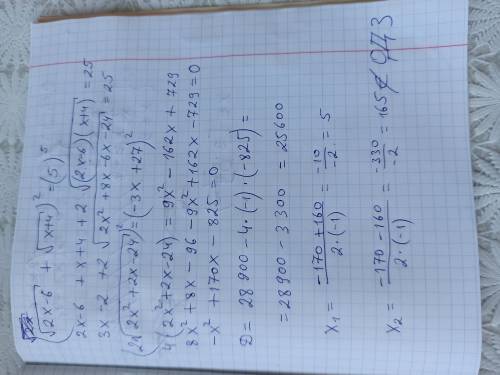 (√(2x-6) + √(x+4))² = (5)⁵
2x-6 + x+4 + 2√((2x-6)(x+4)) = 25
3x - 2 + 2√(2x² + 8x - 6x - 24) = 25
(2√(2x² + 2x - 24))² = (-3x + 27)²
4(2x² + 2x - 24) = 9x² - 162x + 729
8x² + 8x - 96 - 9x² + 162x - 729 = 0
-x² + 170x - 825 = 0
D = 28900 - 4·(-1)·(-825) =
= 28900 - 3300 = 25600
x₁ = (-170 + 160)/(2·(-1)) = -10/-2 = 5
x₂ = (-170 - 160)/(2·(-1)) = -330/-2 = 165 ∉ ОДЗ